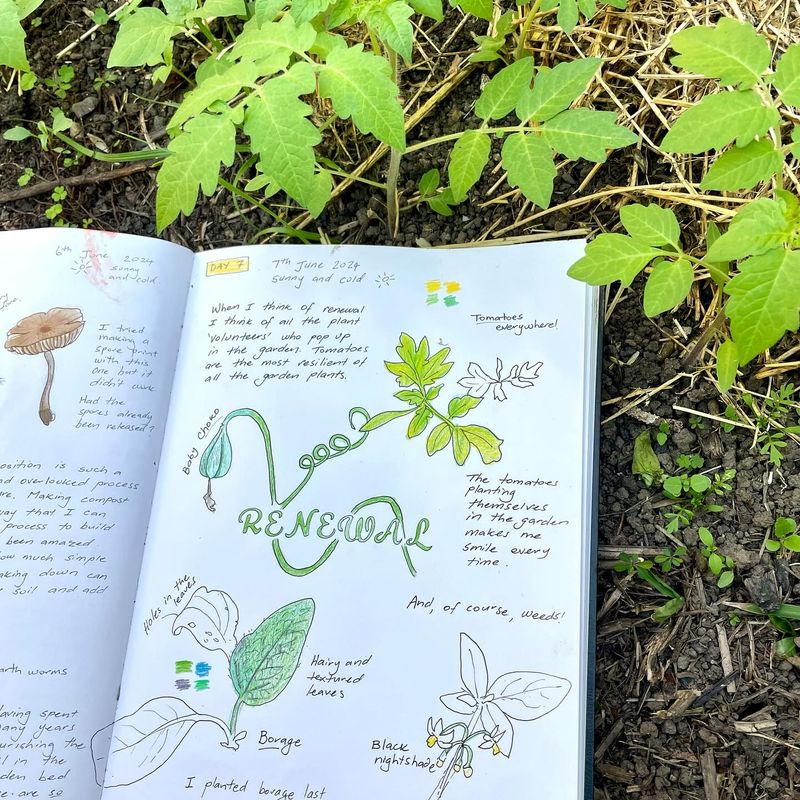 6th June 2024
sunny
and cold.
I tried
making a
spore print
with this
one but it
didn't work
Had the
spores already
been released?
position is such a
nd overlooked process
re. Making compost
way that I can
process to build
been amazed
ow much simple
aking down can
soil and add
arth worms
aving spent
any years
urishing the
l in the
den bed
e are so
DAY 7
7th June 2024
sunny and cold
When I think of renewal
I think of all the plant
'volunteers' who pop up
in the garden. Tomatoes
are the most resilient of
all the garden plants.
Tomatoes
everywhere!
Baby Choko
RENEWAL
The tomatoes
planting
themselves
in the garden
makes me
smile every
time.
Holes in the
leaves
And, of course, weeds!
Hairy and
textured
leaves
Borage
Black
nightshade
I planted borage last